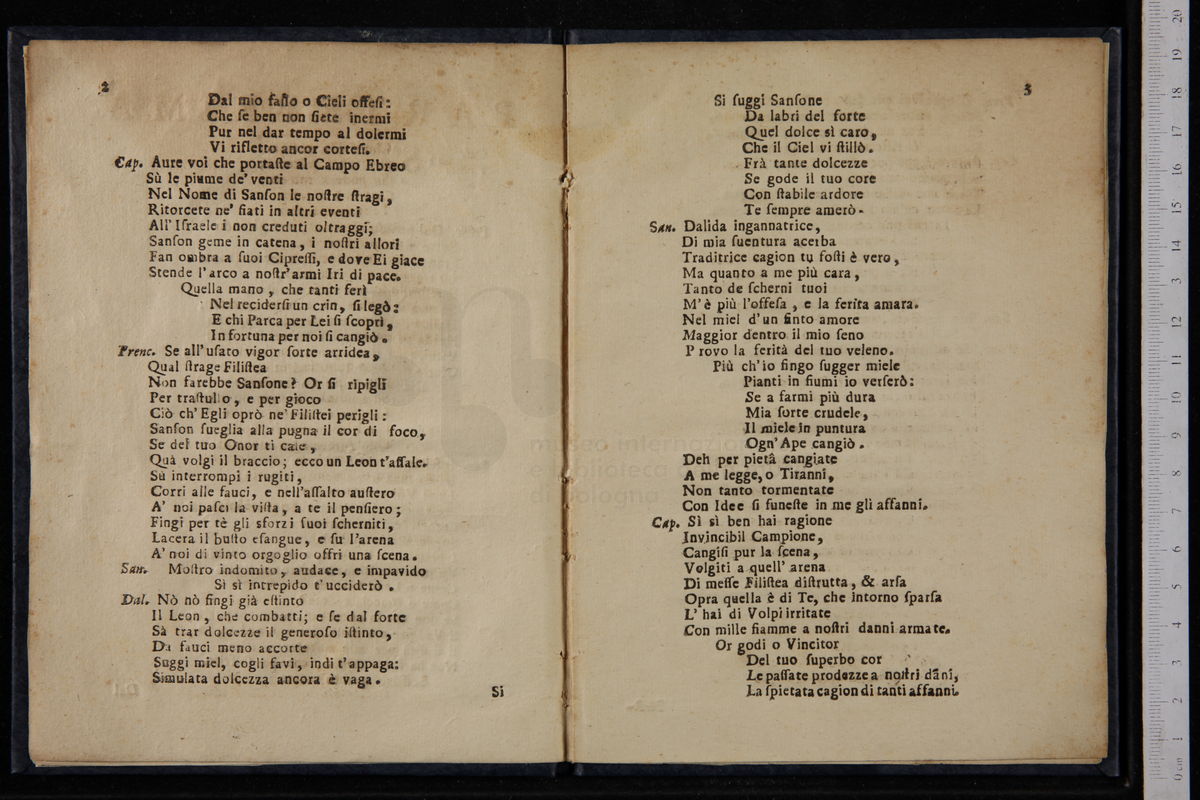 2
Dal mio fasto o Cieli offeſi:
Che ſe ben non ſiete inermi
Pur nel dar tempo al dolermi
Vi rifletto ancor corteſi.
Cap. Aure voi che portaſte al Campo Ebreo
Sù le piume de' venti
Nel Nome di Sanſon le noſtre ſtragi,
Ritorcete ne' fiati in altri eventi
All' Iſraele i non creduti oltraggi;
Sanſon geme in catena, i noſtri allori
Fan ombra a ſuoi Cipreſſi, e dove Ei giace
Stende l'arco a noſtr' armi Iri di pace.
Quella mano, che tanti ferì
Nel reciderſi un crin, ſi legò:
E chi Parca per Lei ſi ſcoprì,
In fortuna per noi ſi cangiò.
Prenc. Se all' uſato vigor ſorte arridea,
Qual ſtrage Filiſtea
Non farebbe Sanſone? Or ſi ripigli
Per traſtullo, e per gioco
Ciò ch' Egli oprò ne' Filiſtei perigli:
Sanſon ſueglia alla pugna il cor di foco,
Se del tuo Onor ti cale,
Quà volgi il braccio; ecco un Leon t'aſſale.
Sù interrompi i rugiti,
Corri alle fauci, e nell'aſſalto auſtero
A' noi paſci la viſta, a te il penſiero;
Fingi per tè gli sforzi ſuoi ſcherniti,
Lacera il buſto eſangue, e ſu l'arena
A' noi di vinto orgoglio offri una ſcena.
San. Moſtro indomito, audace, e impavido
Sì sì intrepido t' ucciderò.
Dal. Nò nò fingi già eſtinto
Il Leon, che combatti; e ſe dal forte
Sà trar dolcezze il generoſo iſtinto,
Da fauci meno accorte
Suggi miel, cogli favi, indi t'appaga:
Simulata dolcezza ancora è vaga.
Si
3
Si ſuggi Sanſone
Da labri del forte
Quel dolce sì caro,
Che il Ciel vi ſtillò.
Frà tante dolcezze
Se gode il tuo core
Con ſtabile ardore
Te ſempre amerò.
San. Dalida ingannatrice,
Di mia ſuentura acerba
Traditrice cagion tu foſti è vero,
Ma quanto a me più cara,
Tanto de ſcherni tuoi
M'è più l'offeſa, e la ferita amara.
Nel miel d'un finto amore
Maggior dentro il mio ſeno
P rovo la ferità del tuo veleno.
Più ch'io fingo ſugger miele
Pianti in fiumi io verſerò:
Se a farmi più dura
Mia ſorte crudele,
Il miele in puntura
Ogn' Ape cangiò.
Deh per pietà cangiate
A me legge, o Tiranni,
Non tanto tormentate
Con Idee ſi funeſte in me gli affanni.
Cap. Sì sì ben hai ragione
Invincibil Campione,
Cangiſi pur la ſcena,
Volgiti a quell' arena
Di meſſe Filiſtea diſtrutta, & arſa
Opra quella è di Te, che intorno ſparſa
L' hai di Volpi irritate
Con mille fiamme a noſtri danni armate.
Or godi o Vincitor
Del tuo ſuperbo cor
Le paſſate prodezze a noſtri dāni,
La ſpietata cagion di tanti affanni.
museo internaz
biblioteca
di bologna